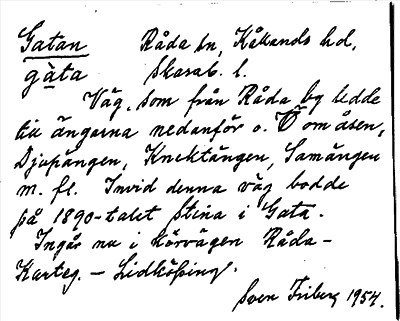 Gatan Råda sn, Kållands hd,
gàta Skarab. l.
Väg, som från Råda by ledde
till ängarna nedanför o. Ö om åsen,
Djupängen, Knektängen, Samängen
m. fl. Invid denna väg bodde
på 1890-talet Stina i Gata.
Ingår nu i körvägen Råda-
Karteg. - Lidköping.
Sven Friberg 1954.